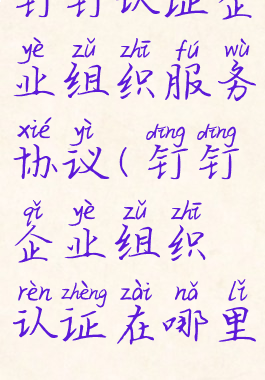 钉钉认证企
yè zǔ zhī fú wù
业组织服务
xié yì dīng dīng
协议(钉钉
qǐ yè zǔ zhī
企业组织
rèn zhèng zài nǎ lǐ
认证在哪里